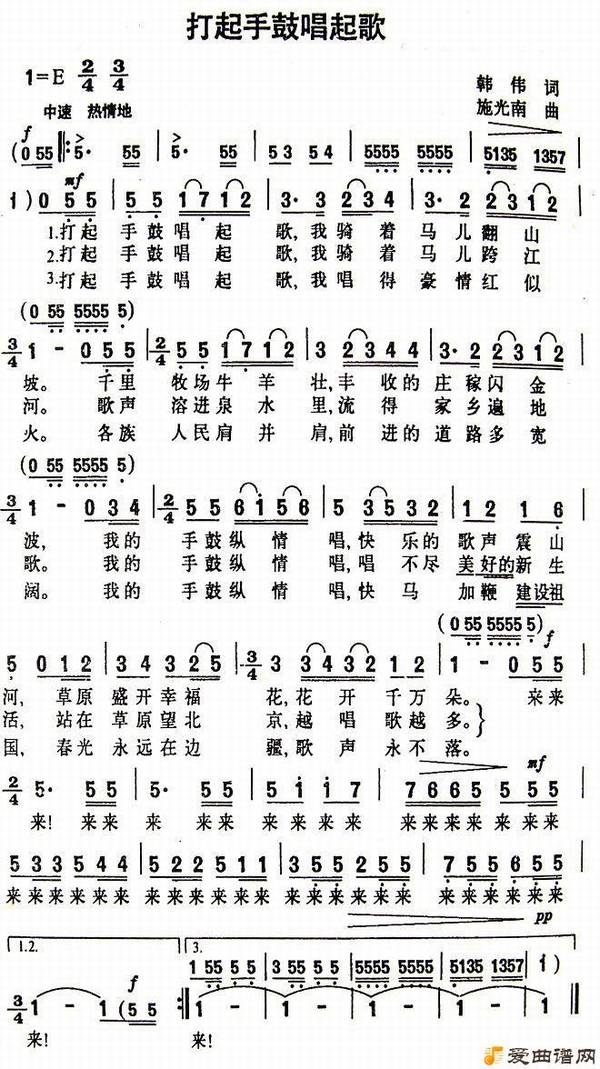 打起手鼓唱起歌
1=E 2/4 3/4
韩伟 词
中速 热情地
施光南 曲
f
(0 55 ‖: 5· 55 | 5· 55 | 53 54 | 5555 5555 | 5135 1357 |
mf
1) 0 5 5 | 5 5 1 7 1 2 | 3· 3 2 3 4 | 3· 2 2 3 1 2 |
1.打起 手鼓唱 起 歌,我骑着 马儿翻山
2.打起 手鼓唱 起 歌,我骑着 马儿跨江
3.打起 手鼓唱 起 歌,我唱得 豪情红似
(0 55 5555 5)
3/4 1 - 0 5 5 | 2/4 5 5 1 7 1 2 | 3 2 3 4 4 | 3· 2 2 3 1 2 |
坡。 千里 牧场牛 羊 壮,丰收的 庄稼闪金
河。 歌声 溶进泉 水 里,流得 家乡遍地
火。 各族 人民肩 并 肩,前进的 道路多宽
(0 55 5555 5)
3/4 1 - 0 3 4 | 2/4 5 5 6 1 5 6 | 5 3 5 3 2 | 1 2 1 6 |
波, 我的 手鼓纵 情 唱,快乐的 歌声震山
歌。 我的 手鼓纵 情 唱,唱不尽 美好的新生
阔。 我的 手鼓纵 情 唱,快马 加鞭 建设祖
(0 55 5555 5)
f
5 0 1 2 | 3 4 3 2 5 | 3/4 3 3 4 3 2 1 2 | 1 - 0 5 5 |
河, 草原 盛开幸福 花,花开 千万朵。 来来
活, 站在 草原望北 京,越唱歌越多。}
国, 春光 永远在边 疆,歌声 永不落。
mf
2/4 5· 5 5 | 5 5 5 5 | 5 i i 7 | 7 6 6 5 5 5 5 |
来! 来来 来 来来 来来来来 来来来来来来来
5 3 3 5 4 4 | 5 2 2 5 1 1 | 3 5 5 2 5 5 | 7 5 5 6 5 5 |
来来来来来来 来来来来来来 来来来来来来 来来来来来来
pp
1.2. 3.
1 55 5 5 | 3 55 5 5 | 5555 5555 | 5135 1357 | i)
f
3/4 1 - 1 (5 5 :‖ 1 - 1 - 1 - 1 - 1 ‖
来! 来!
爱曲谱网